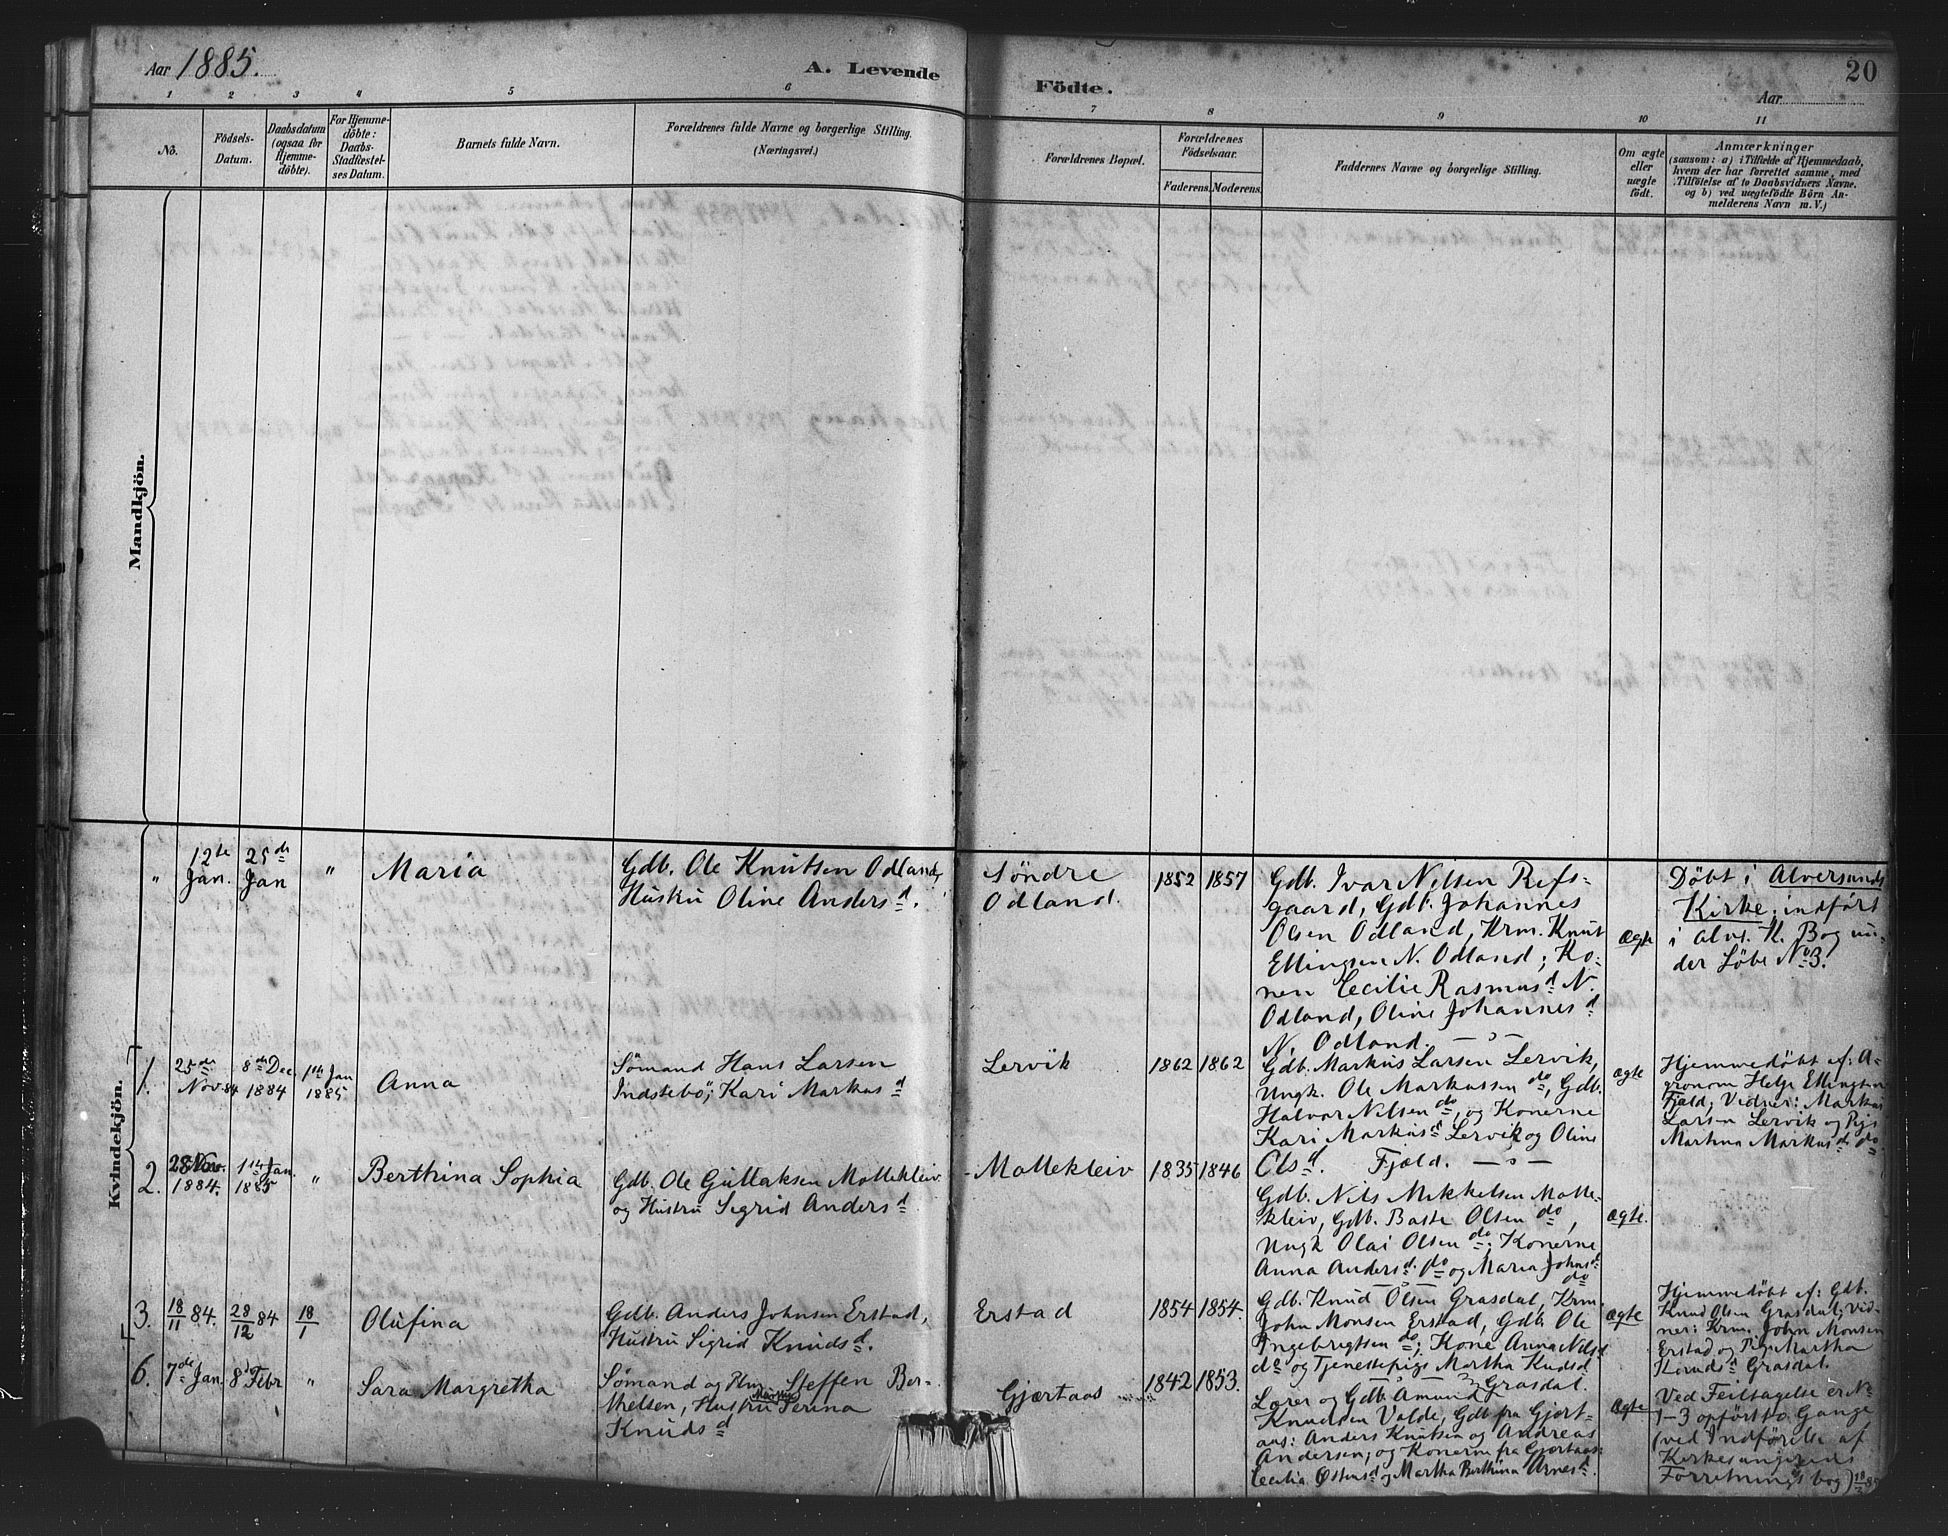 Aar 1885.
A. Levende
Födte.
20
Aar
1 2 3 4 5 6 7 8 9 10 11
No.
Födsels-
Datum.
Daabsdatum
(ogsaa for
Hjemme-
döbte).
For Hjemme-
döbte:
Daabs-
Stadfæstel-
ses Datum.
Barnets fulde Navn.
Forældrenes fulde Navne og borgerlige Stilling.
(Næringsvei.)
Forældrenes Bopæl.
Forældrenes
Födselsaar.
Faderens. Moderens.
Faddernes Navne og borgerlige Stilling.
Om ægte
eller
uægte
födt.
Anmærkninger
(saasom: a) i Tilfælde af Hjemmedaab,
hvem der har forrettet samme, med
Tilföielse af to Daabsvidners Navne.
og b) ved uægtefödte Börn An-
melderens Navn m. V.)
Mandkjön.
Kvindekjön.
"
12te
Jan.
25de
Jan
"
Maria
Gdb. Ole Knutsen Odland,
Hustru Oline Andersd.
Söndre
Odland.
1852 1857
Gdb. Ivar Nilsen Refs-
gaard, Gdb. Johannes
Olsen Odland, Krm. Knut
Ellingsen N. Odland; Ko-
nen Cecilie Rasmusd N.
Odland, Oline Johannesd
N. Odland.
Ægte
Döbt i Alversunds
Kirke, indfört
i Alv. K. Bog un-
der Löbe No 3.
1.
25de
Nov 84
8de Dec
1884
1ste Jan
1885
Anna
Sömand Hans Larsen
Indstebö; Kari Markusd
Lervik
1862 1862
Gdb. Markus Larsen Lervik,
Ungk. Ole Markussen do, Gdb.
Halvor Nilsen do, og Konerne
Kari Markusd Lervik og Oline
Olsd. Fjeld.
Ægte
Hjemmedöbt af: A-
gronom Helje Ellingsen
Fjeld, Vidner: Markus
Larsen Lervik og Pige
Martina Markusd do
2.
28 Nov.
1884.
1ste Jan.
1885
"
Berthina Sophia
Gdb. Ole Gullaksen Mollekleiv
og Hustru Sigrid Andersd
Mollekleiv
1835 1846
Gdb. Nils Mikkelsen Molle-
kleiv, Gdb. Baste Olsen do,
Ungk Olai Olsen do; Konerne
Anna Andersd. do og Maria Johnsd
do
Ægte.
3.
18/11 84.
28/12 84
18/1
Olufina
Gdb. Anders Johnsen Erstad,
Hustru Sigrid Knudsd.
Erstad
1854 1854.
Gdb. Knud Olsen Grasdal, Krm.
John Monsen Erstad, Gdb. Ole
Ingebrigtsen do; Kone Anna Nilsd
do og Tjenestepige Martha Kudsd
Grasdal.
Ægte
Hjemmedöbt af: Gdb.
Knud Olsen Grasdal; vid-
ner: Krm. John Monsen
Erstad og Pige Martha
Knudsd Grasdal.
6.
7de Jan.
8d Febr
"
Sara Margretha
Sömand og Steffen Ber-
thelsen, Hustru Martha Serina
Knudsd
Gjærtaas
1842 1853.
Lærer og Gdb. Amund
Knudsen Valde, Gdb fra Gjert-
aas: Anders Knutsen og Andreas
Andersen; og Konerne fra Gjertaas:
Cecilia Östensd og Martha Berthina Arnesd.
Ægte
Ved Feiltagelse er No
1-3 opfört to Gange
(ved Indförelse af
Kirkesangerens
Forretningsbog) 18/2 85